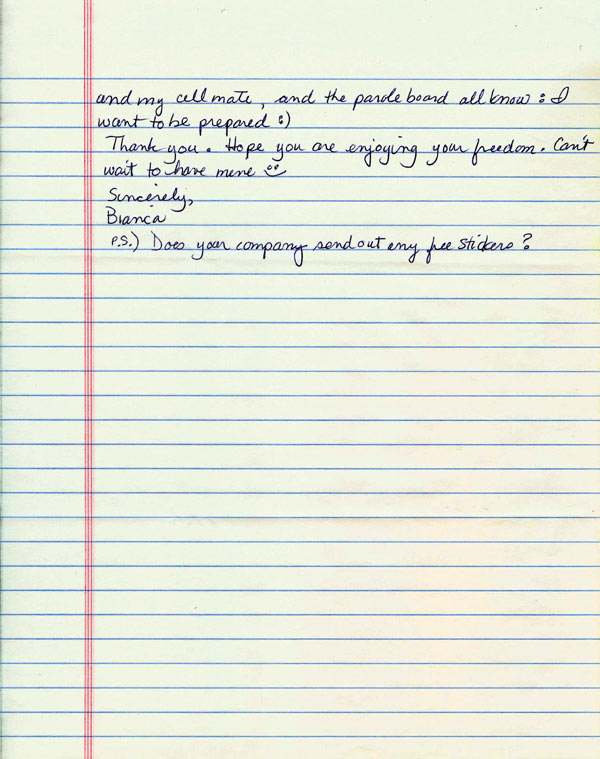 and my cell mate, and the parole board all know : I
want to be prepared :)
Thank you. Hope you are enjoying your freedom. Can't
wait to have mine
Sincerely,
Bianca
P.S.) Does your company send out any free stickers?